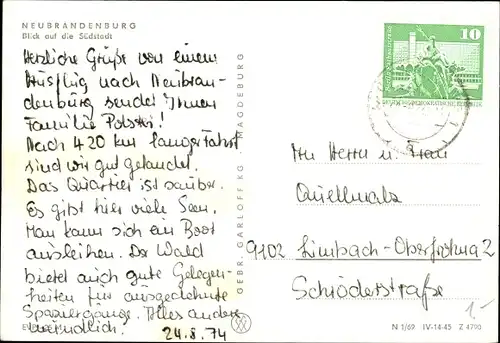 NEUBRANDENBURG
Blick auf die Südstadt
Herzliche Grüße von einem
Ausflug nach Neubran-
denburg sendet Ihnen
Familie
Nach 420 km langer Fahrt
sind wir gut gelandet.
Das Quartier ist sauber.
Es gibt hier viele Seen.
Man kann sich ein Boot
ausleihen. Der Wald
bietet auch gute Gelegen-
heiten für ausgedehnte
Spaziergänge. Alles andere
mündlich. 24.8.74
GEBR. GARLOFF KG, MAGDEBURG
10
DEUTSCHE DEMOKRATISCHE REPUBLIK
An Herrn u. Frau
Quellmalz
9102 Limbach-Oberfrohna 2
Schröderstraße
1.-
N 1/69 IV-14-45 Z 4700